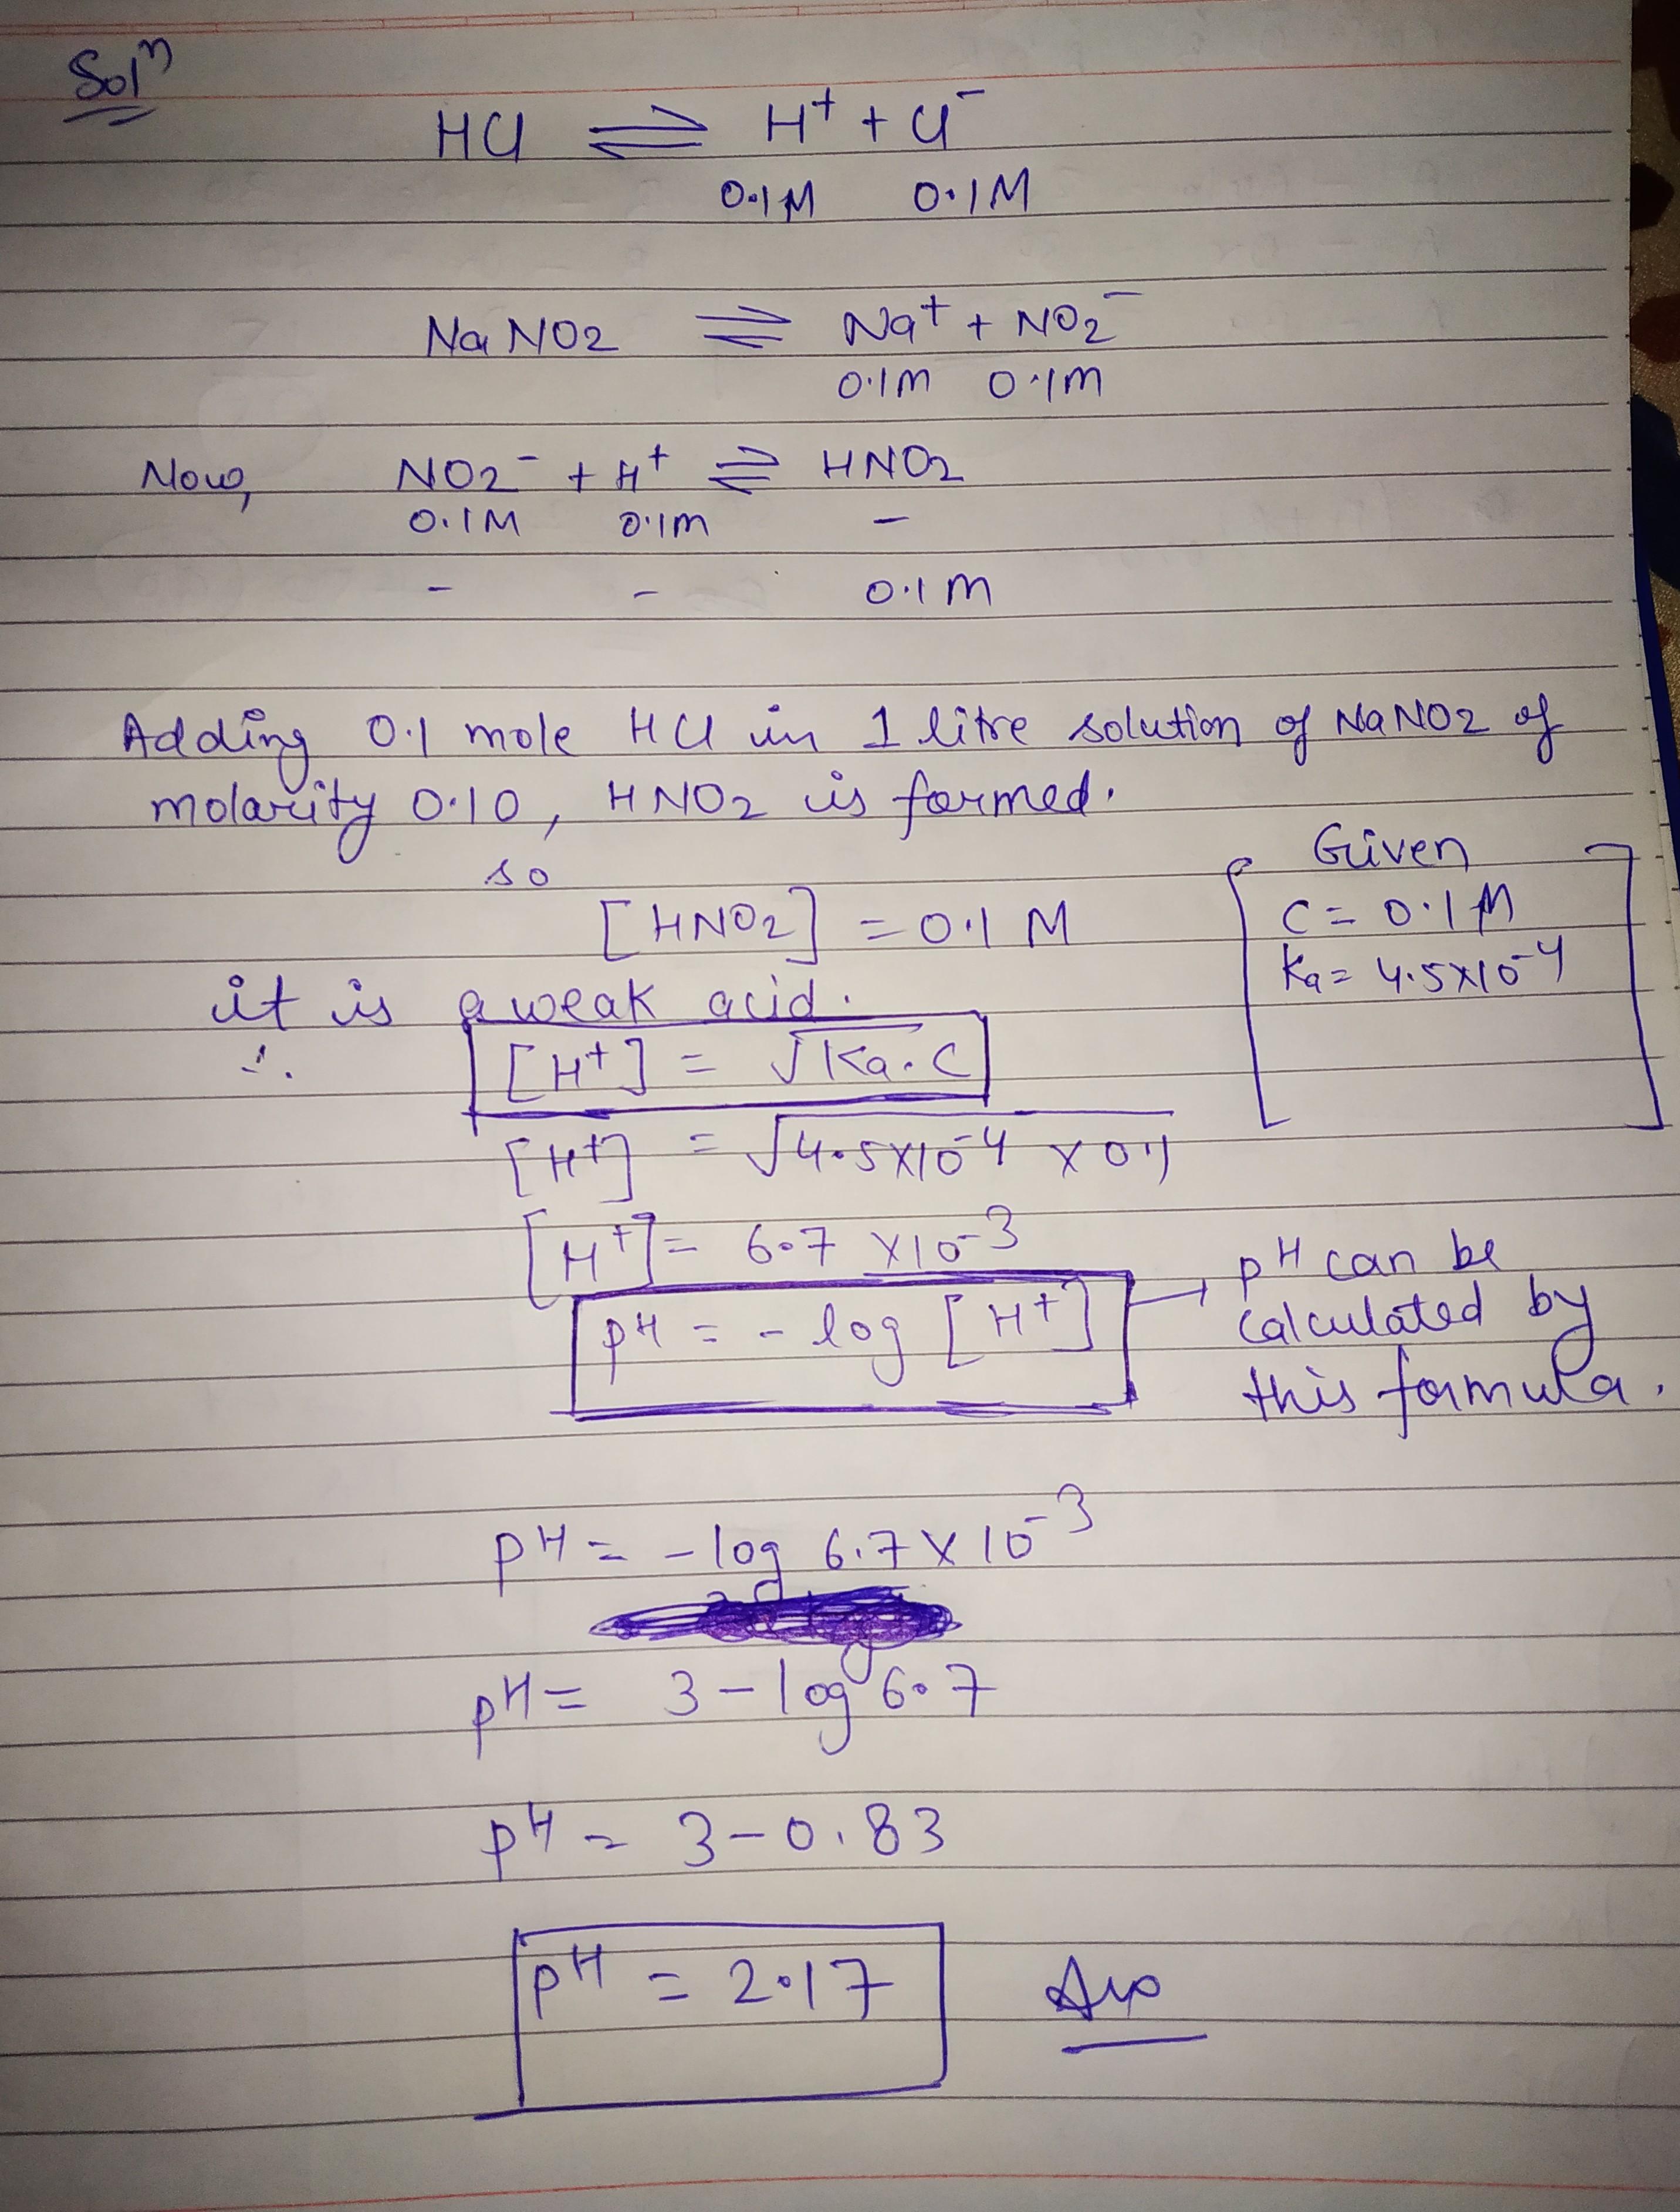 Solⁿ
HCl ⇌ H⁺ + Cl⁻
0.1M 0.1M
NaNO2 ⇌ Na⁺ + NO₂⁻
0.1M 0.1M
Now, NO2⁻ + H⁺ ⇌ HNO2
0.1M 0.1M –
– – 0.1M
Adding 0.1 mole HCl in 1 litre solution of NaNO2 of
molarity 0.10, HNO2 is formed.
so
[HNO2] = 0.1 M
Given
C = 0.1M
Ka = 4.5×10⁻⁴
it is a weak acid.
∴ [H⁺] = √Ka.C
[H⁺] = √4.5×10⁻⁴ × 0.1
[H⁺] = 6.7 ×10⁻³
pH = - log [H⁺] → pH can be
calculated by
this formula.
pH = - log 6.7 × 10⁻³
pH = 3 - log 6.7
pH = 3 - 0.83
pH = 2.17 Ans